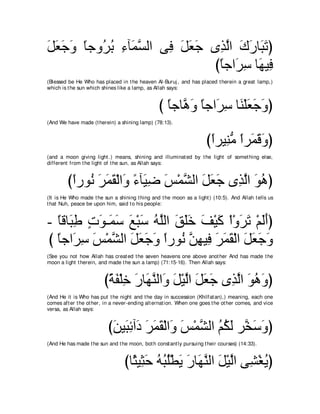 (تَبَارَكَ الَّذِى جَعَلَ فِى السَّمَآءِ بُرُوجاً وَجَعَلَ
فِيهَا سِرَاجاً)
(Blessed be He Who has placed in the heaven Al-Buruj, and has placed therein a great lamp,)
which is the sun which shines like a lamp, as Allah says:
(وَجَعَلْنَا سِرَاجاً وَهَّاجاً )
(And We have made (therein) a shining lamp) (78:13).
(وَقَمَراً مُّنِيراً)
(and a moon giving light.) means, shining and illuminated by the light of something else,
different from the light of the sun, as Allah says:
(هُوَ الَّذِى جَعَلَ الشَّمْسَ ضِيَآءً وَالْقَمَرَ نُوراً)
(It is He Who made the sun a shining thing and the moon as a light) (10:5). And Allah tells us
that Nuh, peace be upon him, said to his people:
(أَلَمْ تَرَوْاْ كَيْفَ خَلَقَ اللَّهُ سَبْعَ سَمَـوَتٍ طِبَاقاً -
وَجَعَلَ الْقَمَرَ فِيهِنَّ نُوراً وَجَعَلَ الشَّمْسَ سِرَاجاً )
(See you not how Allah has created the seven heavens one above another And has made the
moon a light therein, and made the sun a lamp) (71:15-16). Then Allah says:
(وَهُوَ الَّذِى جَعَلَ الَّيْلَ وَالنَّهَارَ خِلْفَةً)
(And He it is Who has put the night and the day in succession (Khilfatan),) meaning, each one
comes after the other, in a never-ending alternation. When one goes the other comes, and vice
versa, as Allah says:
(وَسَخَّر لَكُمُ الشَّمْسَ وَالْقَمَرَ دَآئِبَينَ)
(And He has made the sun and the moon, both constantly pursuing their courses) (14:33).
(يُغْشِى الَّيْلَ النَّهَارَ يَطْلُبُهُ حَثِيثًا)